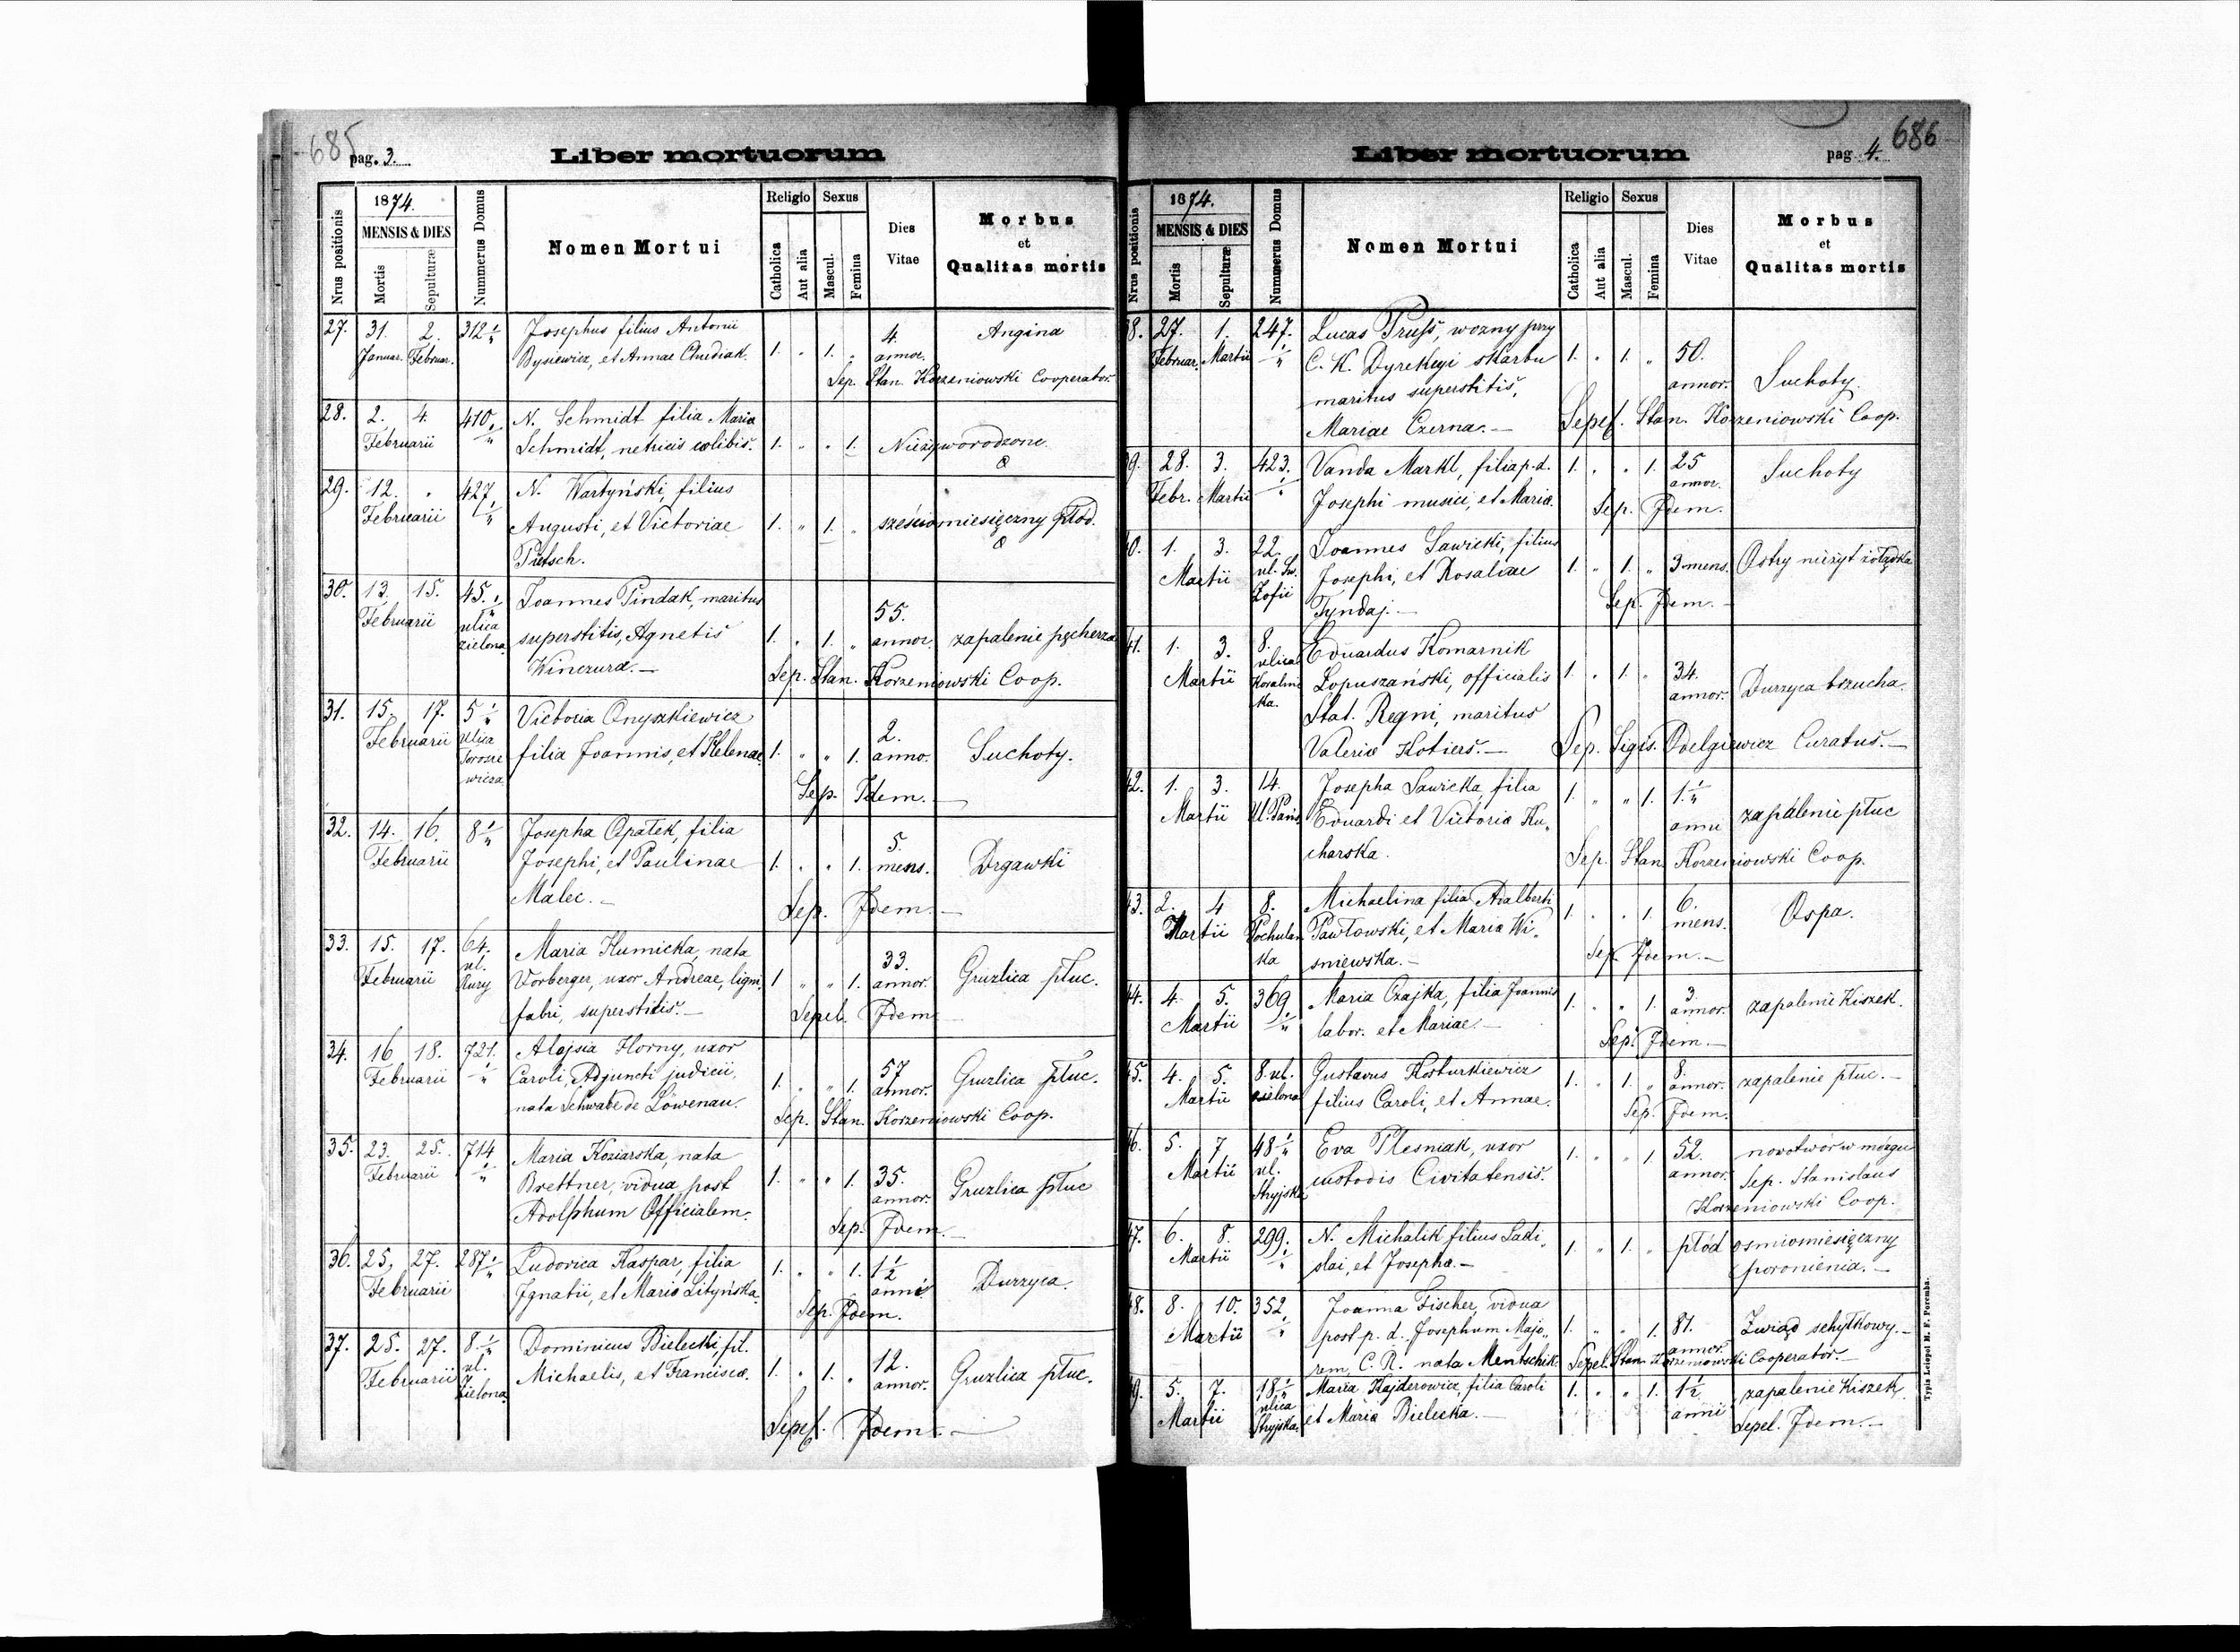 685
pag. 3.
Liber mortuorum
Nrus positionis
1874.
MENSIS & DIES
Mortis
Sepulturæ
Nummerus Domus
Nomen Mortui
Religio
Catholica
Aut alia
Sexus
Mascul.
Femina
Dies Vitae
Morbus
et
Qualitas mortis
27. 31. 2. 312 Josephus filius Antonii 4. Angina
Januar. Februar. Bysiewicz, et Annae Chudiak. 1. " 1. " annor.
Sep. Stan. Korzeniowski Cooperator.
28. 2. 4. 410. N. Schmidt filia Maria
Februarii Schmidt, nutricis colibis. 1. " " 1. Nieżyworodzone.
29. 12. " 427 N. Wartyński, filius
Februarii Augusti, et Victoriae 1. " 1. " sześciomiesięczny płód.
Pietsch.
30. 13. 15. 45. Joannes Pindak, maritus 55.
Februarii ulica superstitis, Agnetis 1. " 1. " annor. zapalenie pęcherza
zielona Winczura.— Sep. Stan. Korzeniowski Coop.
31. 15. 17. 5 Victoria Onyszkiewicz 2.
Februarii Ulica filia Joannis, et Helenae. 1. " " 1. anno. Suchoty.
Torosie
wicza Sep. Idem.—
32. 14. 16. 8 Josepha Opałek, filia 5.
Februarii Josephi, et Paulinae 1. " " 1. mens. Drgawki
Malec.— Sep. Idem.—
33. 15. 17. 64. Maria Kumicka, nata 33.
Februarii ul. Vorberger, uxor Andreae, lign. 1 " " 1. annor. Gruzlica płuc.
Rury fabri, superstitis.— Sepel. Idem
34. 16 18. 721. Alojsia Horny, uxor 57
Februarii Caroli, Adjuncti judicii, 1. " " 1. annor. Gruzlica płuc.
nata Schwabe de Löwenau. Sep. Stan. Korzeniowski Coop.
35. 23. 25. 714 Maria Koziarska, nata
Februarii Brettner, vidua post 1. " " 1. 35. annor. Gruzlica płuc
Adolphum Officialem. Sep. Idem.—
36. 25. 27. 287 Ludovica Kaspar, filia 1. " " 1. 1½
Februarii Ignatii, et Maria Lityńska. anni Durzyca.
Sep. Idem.
37. 25. 27. 8. Dominicus Bielecki, fil. 12.
Februarii ul. Michaelis, et Francisca. 1. " 1. " annor. Gruzlica płuc.
Zielona
Sepel. Idem.—
686
Liber mortuorum
pag. 4.
Nrus positionis
1874.
MENSIS & DIES
Mortis
Sepulturæ
Nummerus Domus
Nomen Mortui
Religio
Catholica
Aut alia
Sexus
Mascul.
Femina
Dies Vitae
Morbus
et
Qualitas mortis
38. 27. 1. 247. Lucas Pruss, wozny przy
Februar. Martii C. K. Dyrekcyi skarbu 1. " 1. " 50.
maritus superstitis, annor. Suchoty.
Mariae Czerna.— Sepel. Stan. Korzeniowski Coop.
39. 28. 3. 423. Vanda Markl, filia p. d. 1. " " 1. 25 Suchoty
Febr. Martii Josephi musici, et Maria. annor.
Sep. Idem.
40. 1. 3. 22. Joannes Sawicki, filius
Martii ul. Św. Josephi, et Rosaliae 1. " 1. " 3 mens. Ostry nieżyt żołądka
Zofii Tyndaj.— Sep. Idem.—
41. 1. 3. 8. Eduardus Komarnik
Martii ulica Łopuszański, officialis 1. " 1. " 34.
ka. Stat. Regni, maritus annor. Durzyca brzucha.
Valeria Kotiers.— Sep. Sigis. Odelgiewicz Curatus.—
42. 1. 3. 14. Josepha Sawicka, filia 1. " " 1. 1
Martii Eduardi et Victoria Ku- anni zapalenie płuc
charska. Sep. Stan. Korzeniowski Coop.
43. 2. 4 8. Michaelina filia Adalberti 6.
Martii Pochulan Pawłowski, et Maria Wi- 1. " " 1. mens. Ospa.
ka sniewska.— Sep. Idem.—
44. 4. 5. 369 Maria Czajka, filia Joannis 1. " " 1. 3. zapalenie Kiszek.
Martii labor. et Mariae.— annor.
Sep. Idem.—
45. 4. 5. 8. ul. Gustavus Kosturkiewicz 1. " 1. " 8. zapalenie płuc.—
Martii zielona filius Caroli, et Annae. annor.
Sep. Idem.
46. 5. 7 48 Eva Plesniak, uxor 1. " " 1. 52. nowotwór w mózgu
Martii ul. custodis Civitatensis. annor. Sep. Stanislaus
Stryjska Korzeniowski Coop.
47. 6. 8. 299. N. Michalik filius Ladi- 1. " 1. " płód ośmiomiesięczny
Martii slai, et Josepha.— poronienia.—
48. 8. 10. 352 Joanna Fischer, vidua
Martii post p. d. Josephum Majo- 1. " " 1. 81. Zwiąd schyłkowy.—
rem, C. R. nata Mentschik. annor. Sepel. Stan. Korzeniowski Cooperator.—
49. 5. 7. 18 Maria Kajderowicz, filia Caroli 1. " " 1. 1½ zapalenie Kiszek
Martii ulica et Maria Bielecka.— anni Sepel. Idem.—
Stryjska.
Typis Leiopol M. F. Poremba.